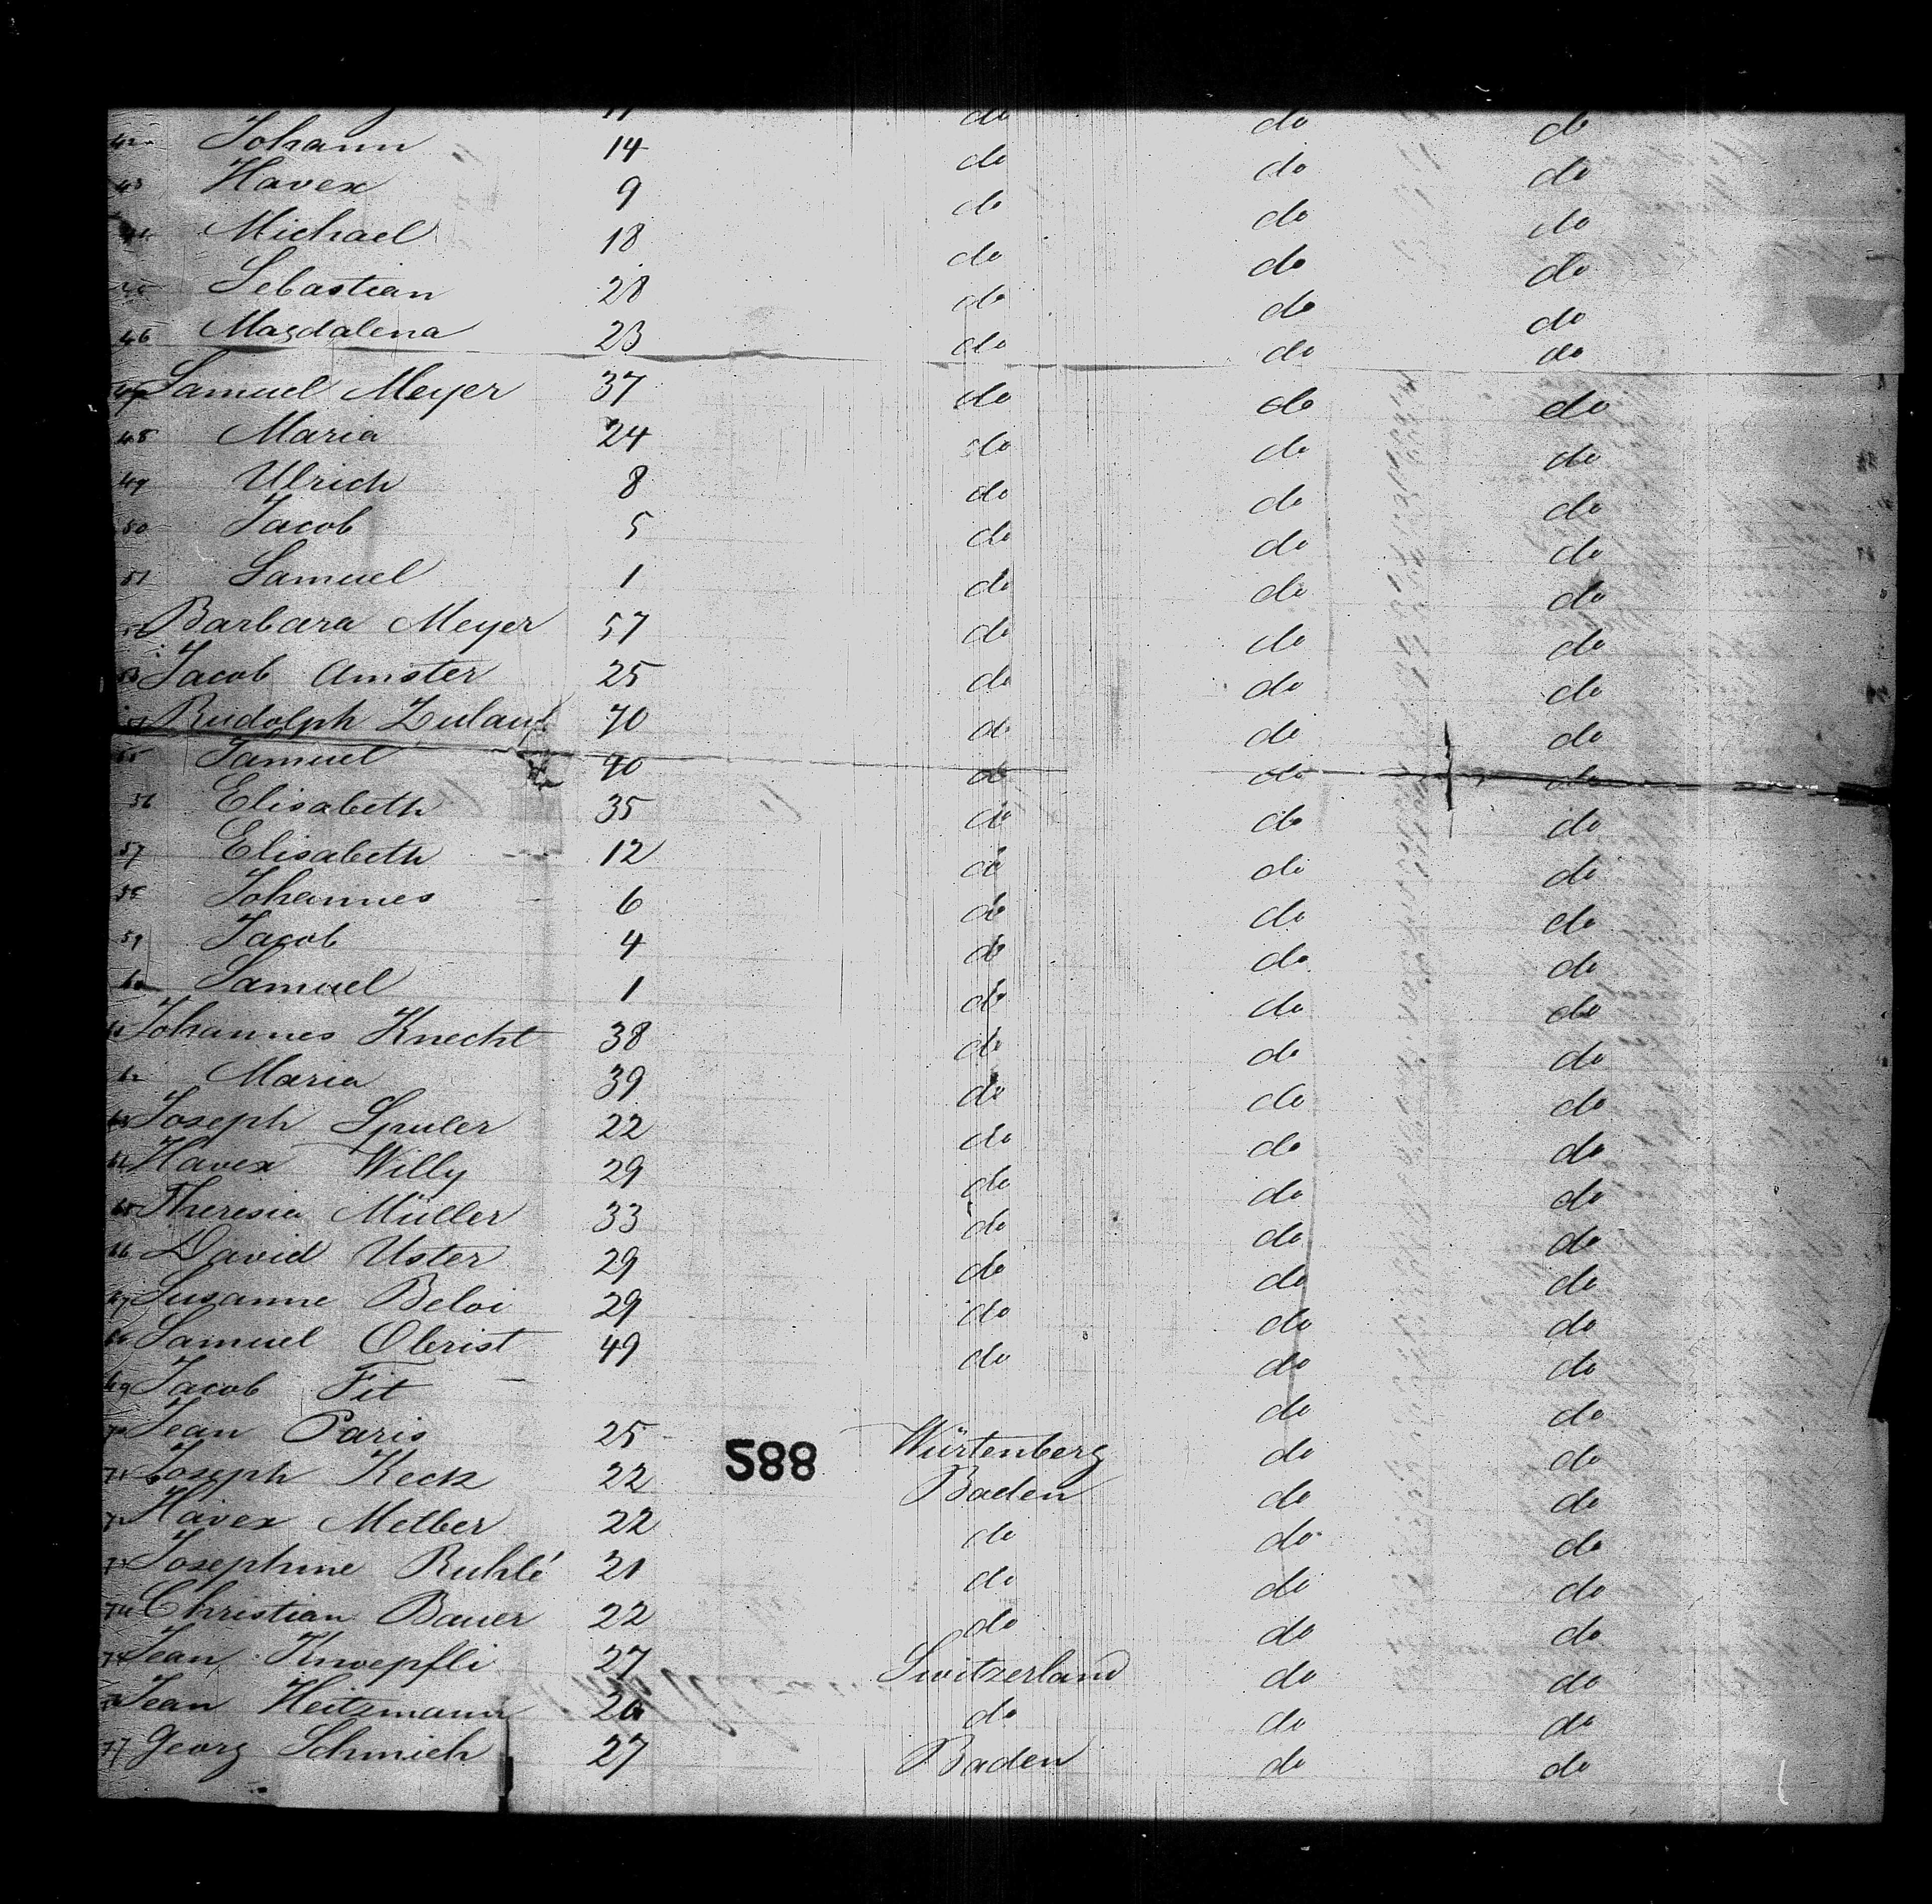 do do do
42 Johann 14 do do do
43 Havex 9 do do do
44 Michael 18 do do do
45 Sebastian 28 do do do
46 Magdalena 23 do do do
47 Samuel Meyer 37 do do do
48 Maria 24 do do do
49 Ulrich 8 do do do
50 Jacob 5 do do do
51 Samuel 1 do do do
52 Barbara Meyer 57 do do do
53 Jacob Amster 25 do do do
54 Rudolph Zulauf 70 do do do
55 Samuel 40 do do do
56 Elisabeth 35 do do do
57 Elisabeth 12 do do do
58 Johannes 6 do do do
59 Jacob 4 do do do
60 Samuel 1 do do do
61 Johannes Knecht 38 do do do
62 Maria 39 do do do
63 Joseph Spuler 22 do do do
64 Havex Willy 29 do do do
65 Theresia Müller 33 do do do
66 David Uster 29 do do do
67 Susanne Beloi 29 do do do
68 Samuel Oberist 49 do do do
69 Jacob Fit do do
70 Jean Paris 25 Würtenberg do do
71 Joseph Keck 22 588 Baden do do
72 Havex Melber 22 do do do
73 Josephine Ruhlé 21 do do do
74 Christian Bauer 22 do do do
75 Jean Knoepfli 27 Switzerland do do
76 Jean Heitzmann 26 do do do
77 Georg Schmich 27 Baden do do